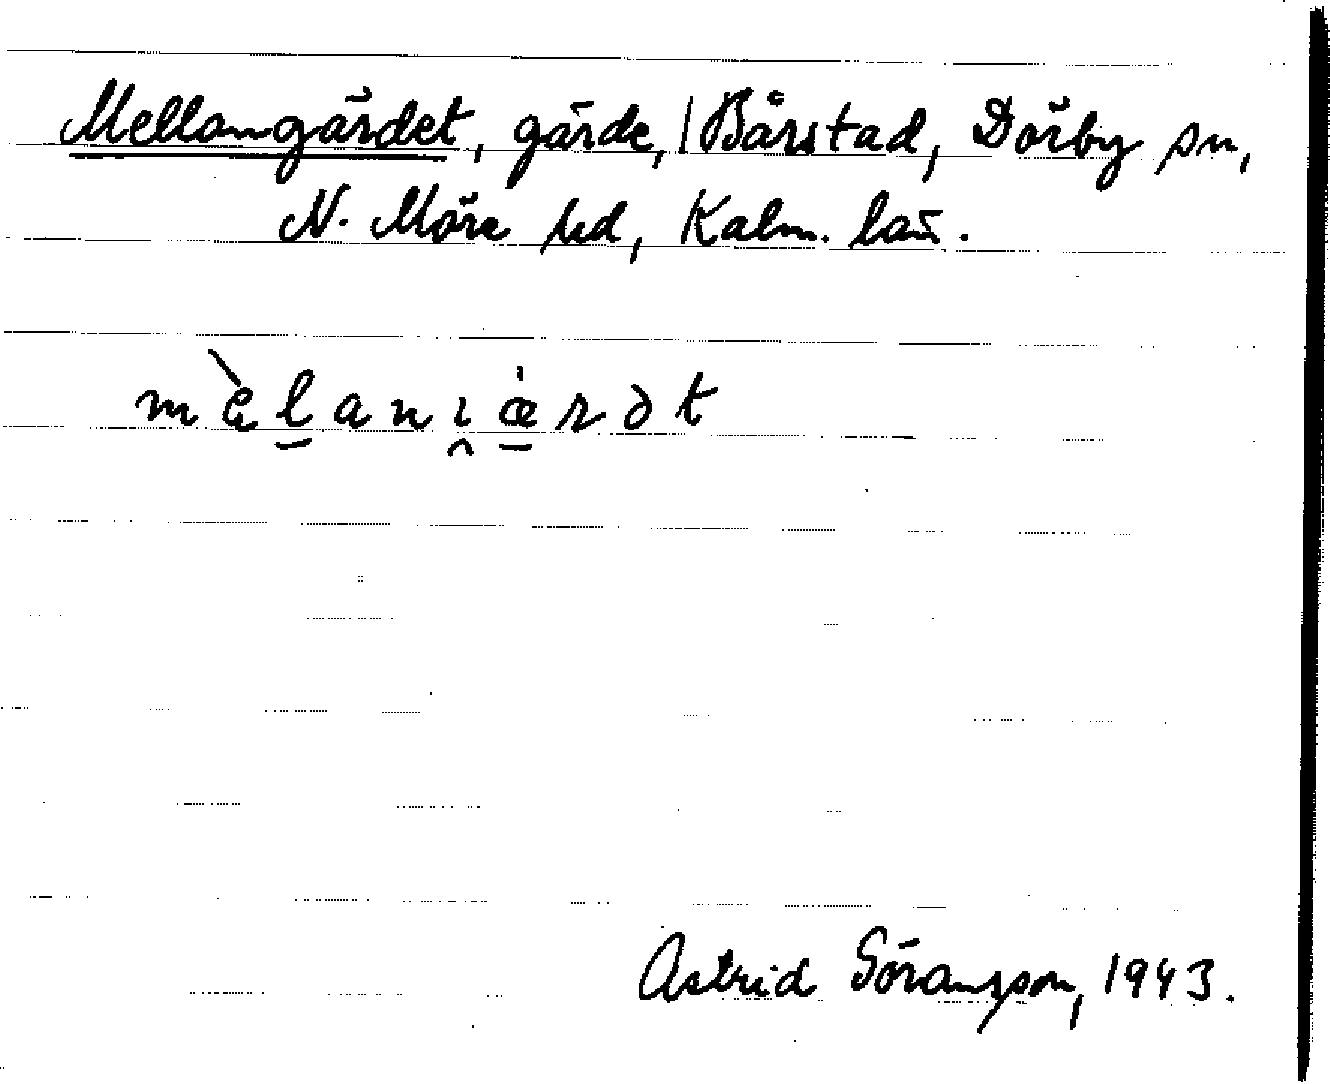 Mellangärdet, gärde, | Bårstad, Dörby sn,
N. Möre hd, Kalm. län.
mèlanɪ̯ærdt
Astrid Göransson, 1943.